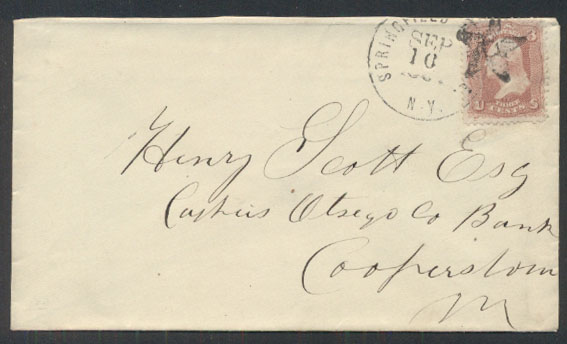 SPRINGFIELD
SEP
10
N.Y.
U THREE S
CENTS
Henry Scott Esq
Cashus Otsego Co Bank
Cooperstown